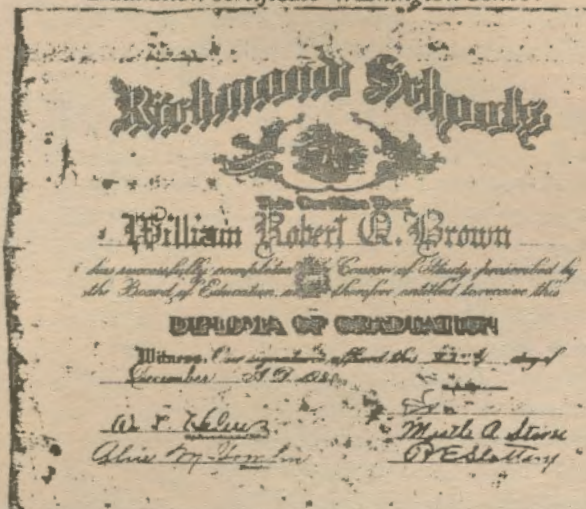 Richmond Schools
This Certifies That
William Robert Q. Brown
has successfully completed Course of Study prescribed by
the Board of Education and therefore entitled to receive this
DIPLOMA OF GRADUATION
Witness Our signatures affixed this day of
December A D
Alice M.
Myrtle A Stone
R E Slattery